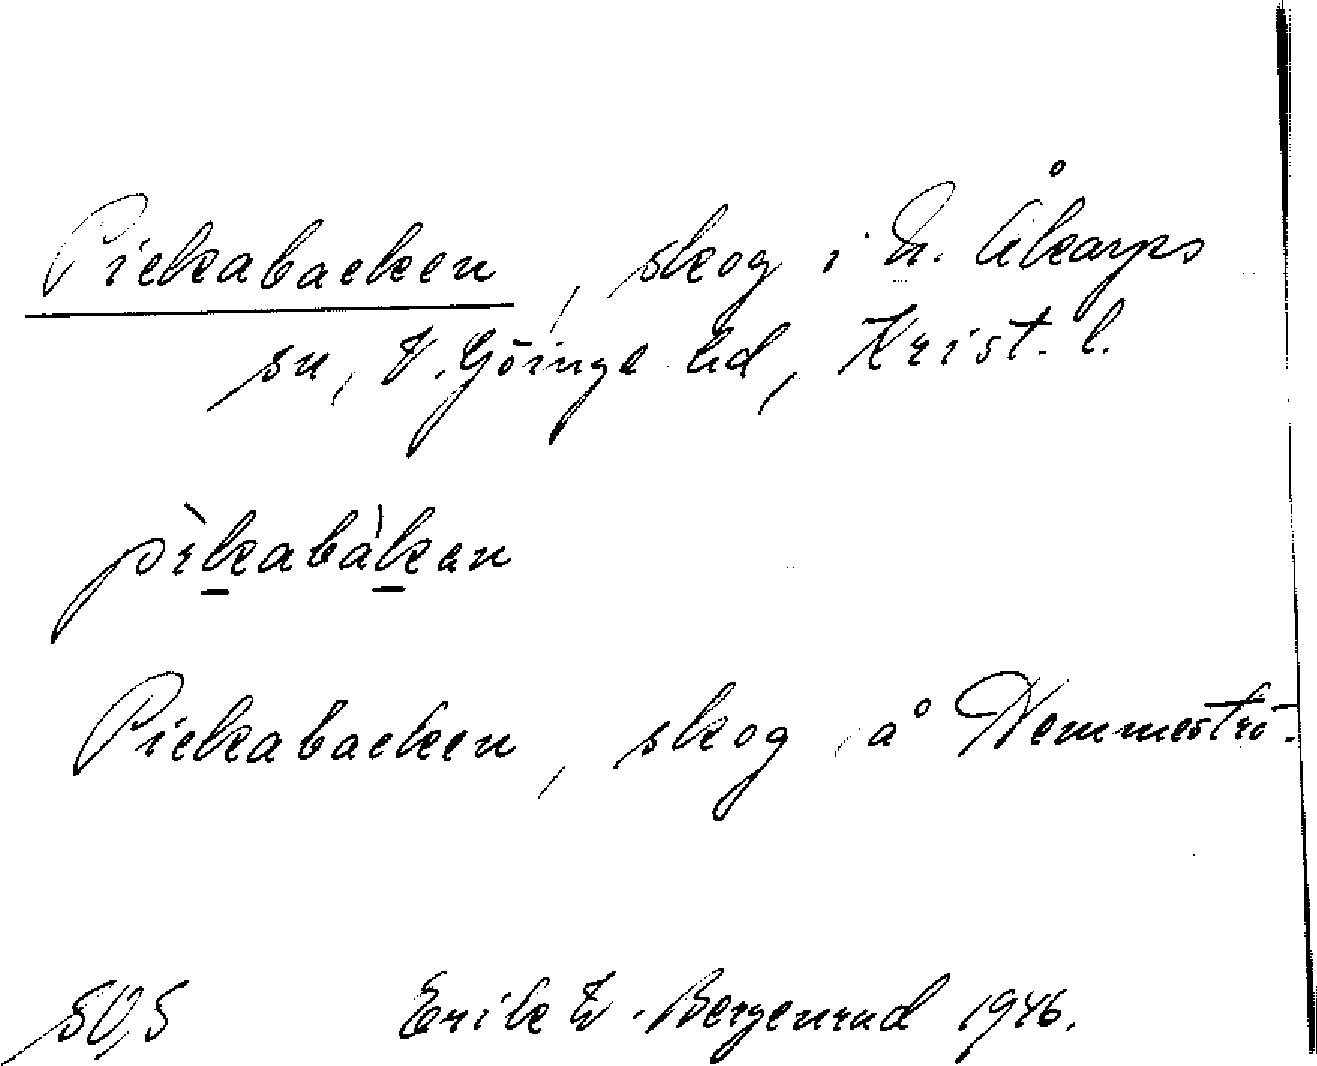 Pickabacken, skog i N. Åkarps
sn, V. Göinge hd, Krist. l.
pìkabàkan
Pickabacken, skog å Nemmeströ.
SO,S Erik W. Bergenrud 1946.